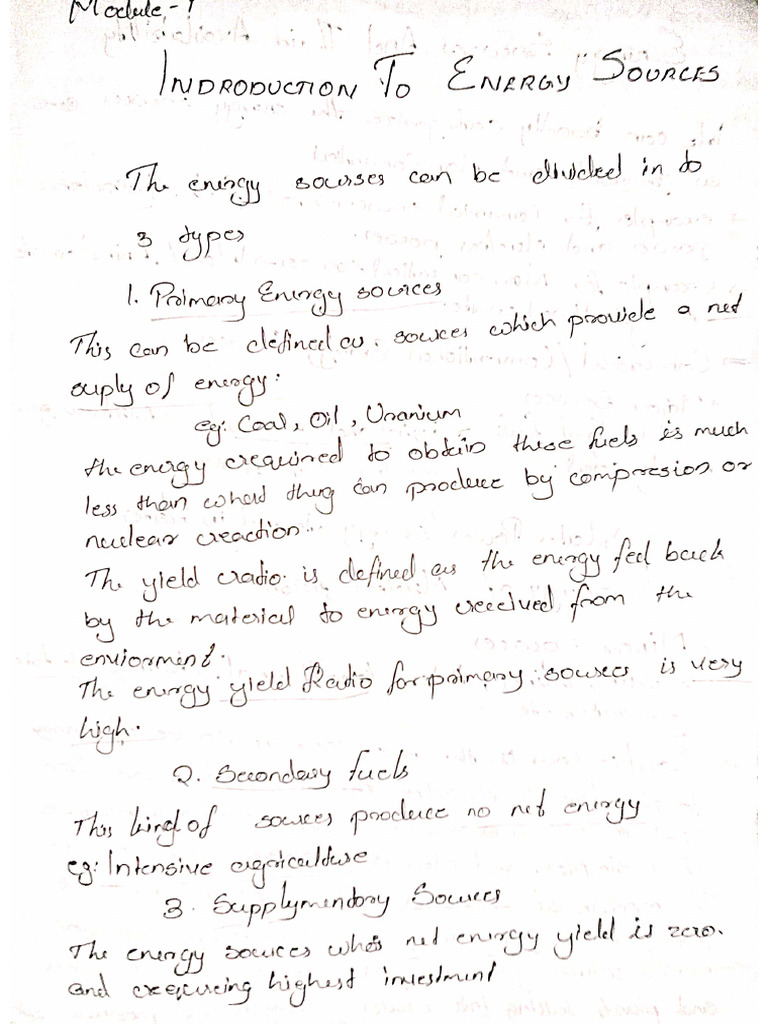 Module-1
INDRODUCTION TO ENERGY SOURCES
The energy sourses can be divided in to
3 types
1. Primary Energy sources
This can be defined as sources which provide a net
suply of energy:
eg: Coal, Oil, Uranium
the energy required to obtain these fuels is much
less than what they can produce by compresion or
nuclear reaction.
The yield radio is defined as the energy fed back
by the material to energy received from the
enviorment.
The energy yield Radio for primary sources is very
high.
2. Secondary fuels
This kind of sources produce no net energy
eg: Intensive agriculture
3. Supplymendory Sources
The energy sources who's net energy yield is zero.
and requcing highest investment